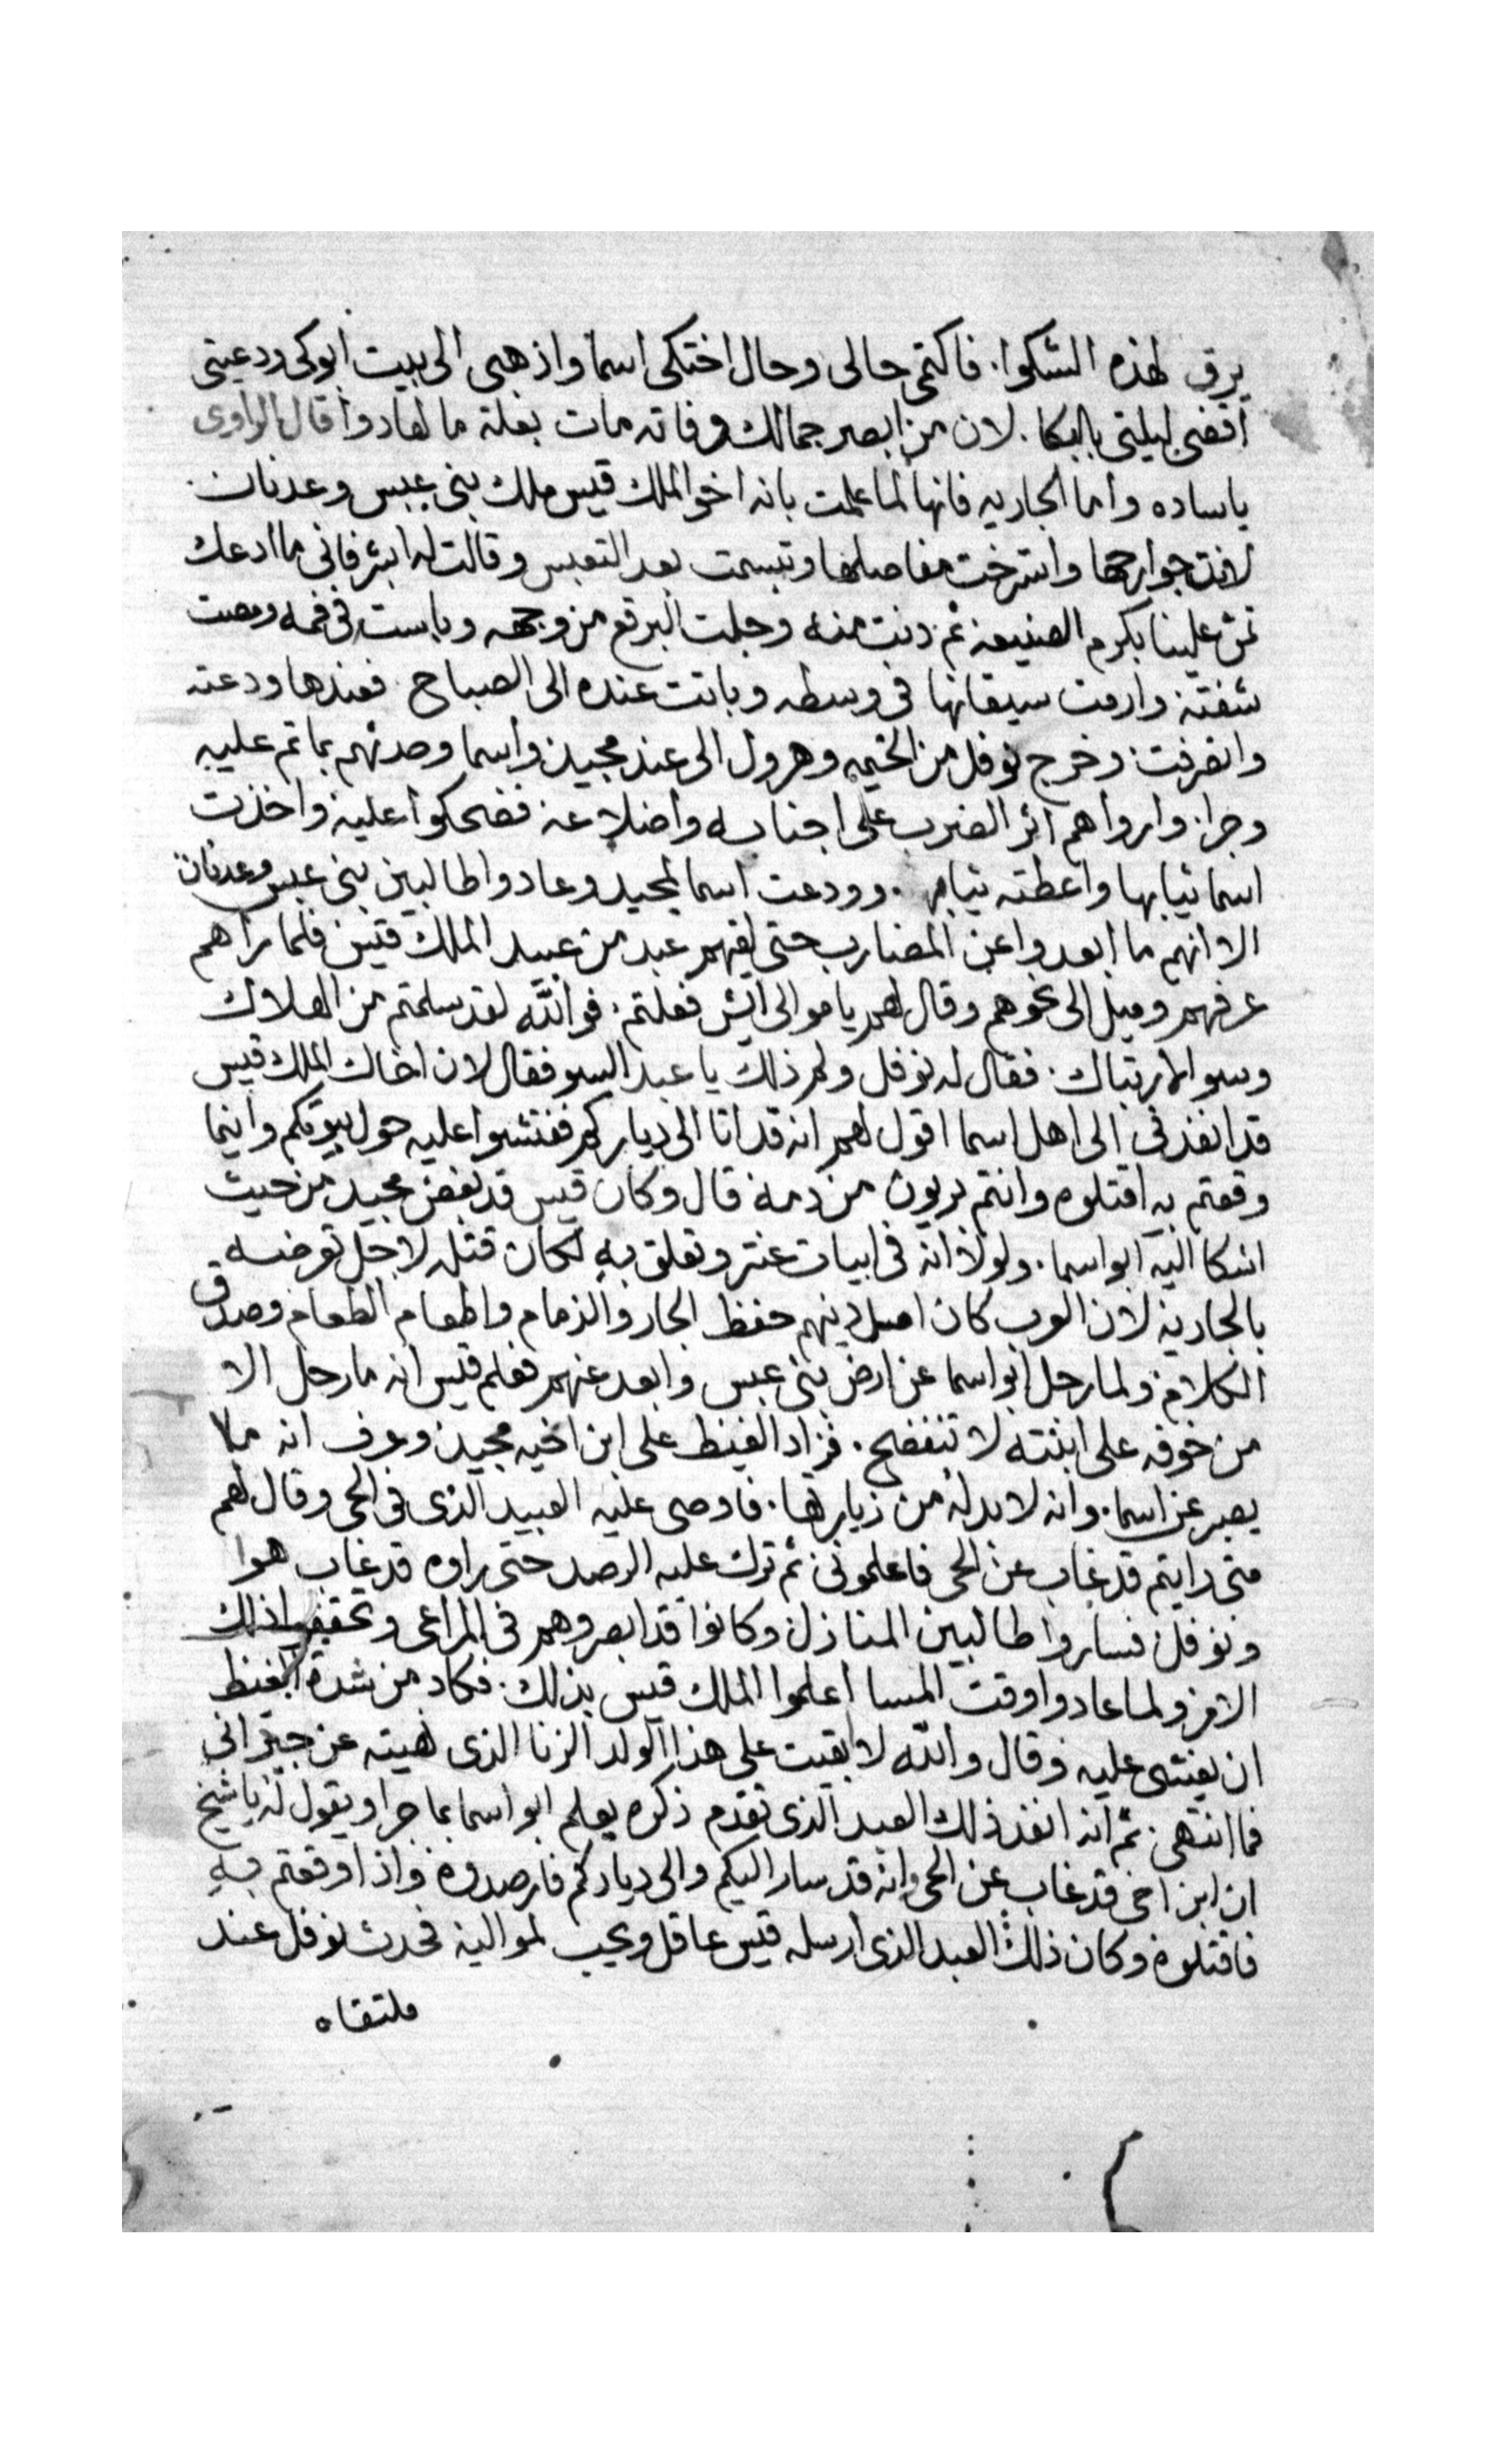 يرق لهذه الشكوا. فاكتمى حالى وحال اختكى اسما واذهبى الى بيت ابوكى ودعينى
اقضى ليلتى بالبكا. لان من ابصر جمالك وفاته مات بعلة ما لها دوا قال الراوى
ياساده واما الجاريه فانها لما علمت بانه اخو الملك قيس ملك بنى عبس وعدنان.
لانت جوارحها واسترخت مفاصلها وتبسمت بعد التعبس وقالت له ابشر فانى ما ادعك
تمن علينا بكرم الصنيعه ثم دنت منه وجلت البرقع من وجهه وباست فى فمه ومصت
شفته وارمت سيقانها فى وسطه وباتت عنده الى الصباح. فعندها ودعته
وانصرفت وخرج نوفل من الخيمه وهرول الى عند مجيد واسما وحدثهم بما تم عليه
وجرا. واروا هم اثر الضرب على اجنابه واضلاعه فضحكوا عليه واخذت
اسما ثيابها واعطته ثيابه. وودعت اسما لمجيد وعادوا طالبين بنى عبس وعدنان
الا انهم ما ابعدوا عن المضارب حتى لقيهم عبد من عبيد الملك قيس فلما راهم
عرفهم وميل الى نحوهم وقال لهم يا موالى ايش فعلتم. فوالله لقد سلمتم من الهلاك
وسو الارتباك. فقال له نوفل ولم ذلك يا عبد السو فقال لان اخاك الملك قيس
قد انفذنى الى اهل اسما اقول لهم انه قد اتا الى دياركم ففتشوا عليه حول بيوتكم واينما
وقعتم به اقتلوه وانتم بريون من دمه قال وكان قيس قد بغض مجيد من حيث
اشكا اليه ابو اسما. ولولا انه فى ابيات عنتر وتعلق به لكان قتله لاجل تعرضه
بالجاريه لان العرب كان اصل دينهم حفظ الجار والذمام واطعام الطعام وصدق
الكلام ولما رحل ابو اسما عن ارض بنى عبس وابعد عنهم فعلم قيس انه ما رحل الا
من خوفه على ابنته لا تنفضح. فزاد الغيظ على ابن اخيه مجيد وعرف انه ما
يصبر عن اسما. وانه لابد له من زيارتها. فاوصى عليه العبيد الذى فى الحى وقال لهم
متى رايتم قد غاب عن الحى فاعلمونى ثم ترك عليه الرصد حتى راوه قد غاب هوا
ونوفل فساروا طالبين المنازل وكانوا قد ابصروهم فى المراعى وتحققوا ذلك
الامر ولما عادوا وقت المسا اعلموا الملك قيس بذلك. فكاد من شدة الغيظ
ان يغشى عليه وقال والله لا بقيت على هذا الولد الزنا الذى نهيته عن جيرانى
فما انتهى. ثم انه انفذ ذلك العبد الذى تقدم ذكره يعلم ابو اسما بما جرا ويقول له يا شيخ
ان ابن اخى قد غاب عن الحى وانه قد سار اليكم والى دياركم فارصدوه واذا وقعتم به
فاقتلوه وكان ذلك العبد الذى ارسله قيس عاقل ويحب لمواليه فحدث نوفل عند
ملتقاه